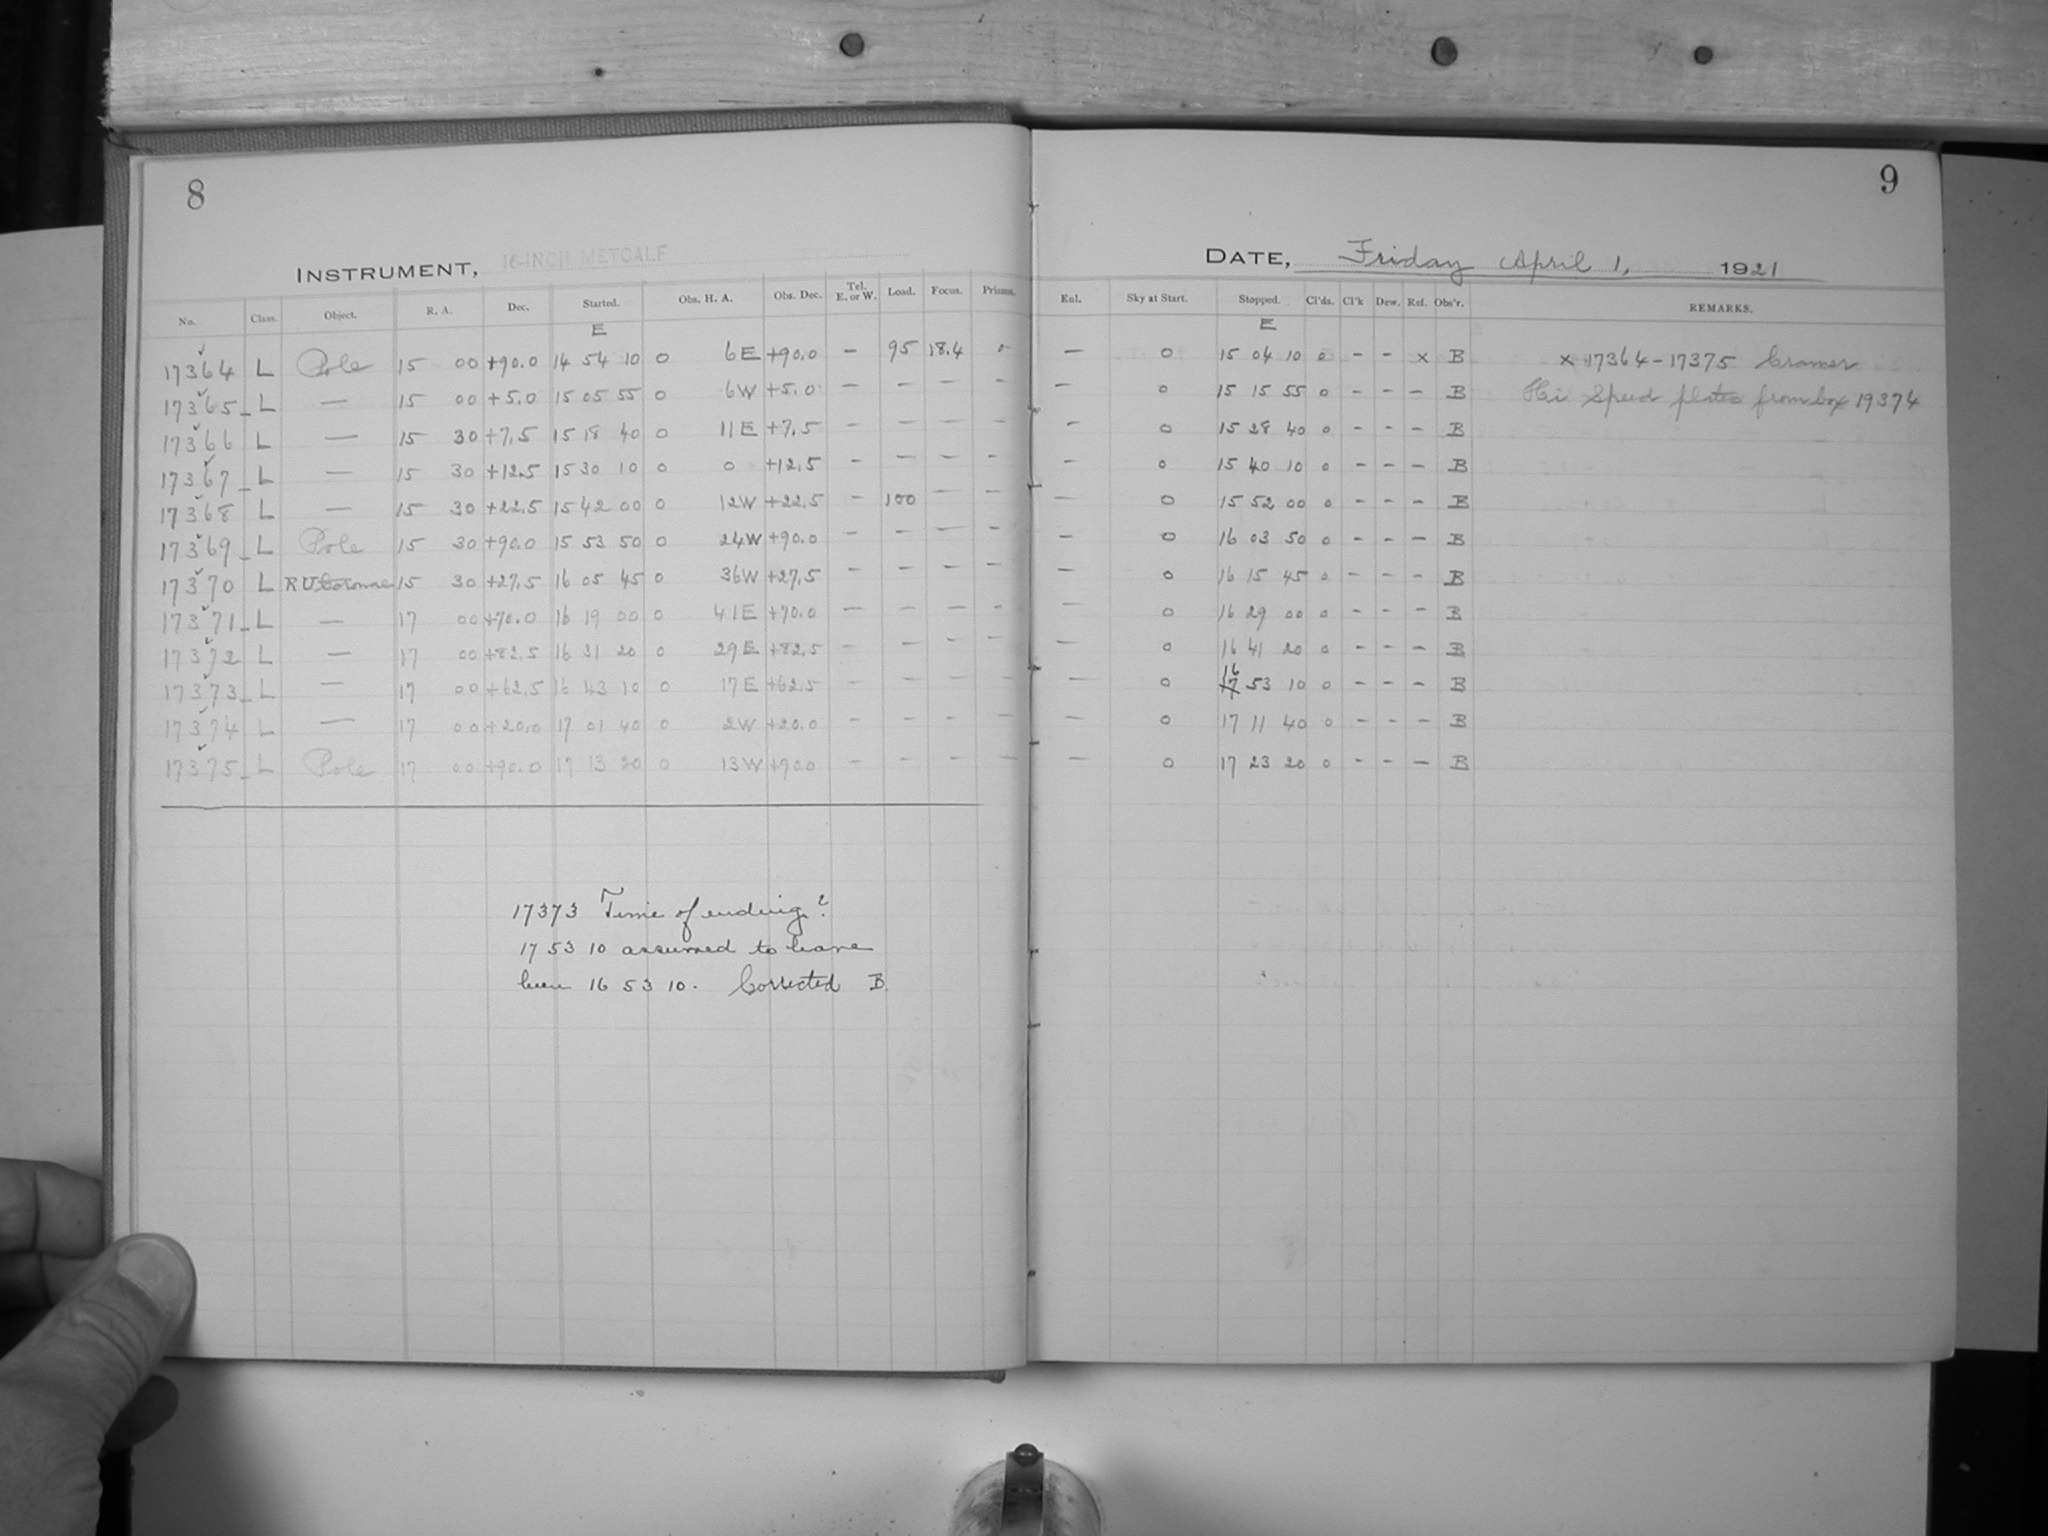 8
INSTRUMENT, 16-INCH METCALF
No. Class. Object. R. A. Dec. Started. Obs. H. A. Obs. Dec. Tel. E. or W. Load. Focus. Prisms.
E
17364 L Pole 15 00 +90.0 14 54 10 0 6E +90.0 — 95 18.4 0
17365 L — 15 00 +5.0 15 05 55 0 6W +5.0 — — — —
17366 L — 15 30 +7.5 15 18 40 0 11E +7.5 — — — —
17367 L — 15 30 +12.5 15 30 10 0 0 +12.5 — — — —
17368 L — 15 30 +22.5 15 42 00 0 12W +22.5 — 100 — —
17369 L Pole 15 30 +90.0 15 53 50 0 24W +90.0 — — — —
17370 L RU Coronae 15 30 +27.5 16 05 45 0 36W +27.5 — — — —
17371 L — 17 00 +70.0 16 19 00 0 41E +70.0 — — — —
17372 L — 17 00 +82.5 16 31 20 0 29E +82.5 — — — —
17373 L — 17 00 +62.5 16 43 10 0 17E +62.5 — — — —
17374 L — 17 00 +20.0 17 01 40 0 2W +20.0 — — — —
17375 L Pole 17 00 +90.0 17 13 20 0 13W +90.0 — — — —
17373 Time of ending?
17 53 10 assumed to have
been 16 53 10. Corrected B.
9
DATE, Friday April 1, 1921
Enl. Sky at Start. Stopped. Cl'ds. Cl'k Dew. Ref. Obs'r. REMARKS.
E
— 0 15 04 10 0 — — x B x 17364-17375 Cramer
— 0 15 15 55 0 — — — B Hi Speed plates from box 19374
— 0 15 28 40 0 — — — B
— 0 15 40 10 0 — — — B
— 0 15 52 00 0 — — — B
— 0 16 03 50 0 — — — B
— 0 16 15 45 0 — — — B
— 0 16 29 00 0 — — — B
— 0 16 41 20 0 — — — B
16
— 0 17 53 10 0 — — — B
— 0 17 11 40 0 — — — B
— 0 17 23 20 0 — — — B